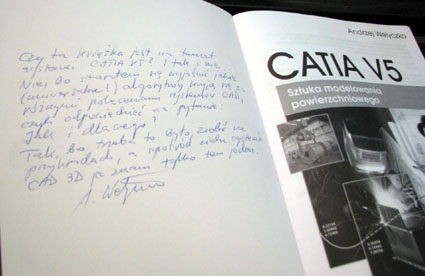 Czy ta książka jest na temat
systemu CATIA V5? I tak, i nie.
Nie, bo starałem się wyjaśnić jakie
(uniwersalne!) algorytmy kryją się za
różnymi poleceniami systemu CATIA,
czyli odpowiedzieć na pytanie:
Jak i dlaczego?
Tak, bo trzeba to było zrobić na
przykładach, a spośród wielu systemów
CAD 3D ja znam tylko ten jeden.
A. Wełyczko
Andrzej Wełyczko
CATIA V5
Sztuka modelowania
powierzchniowego